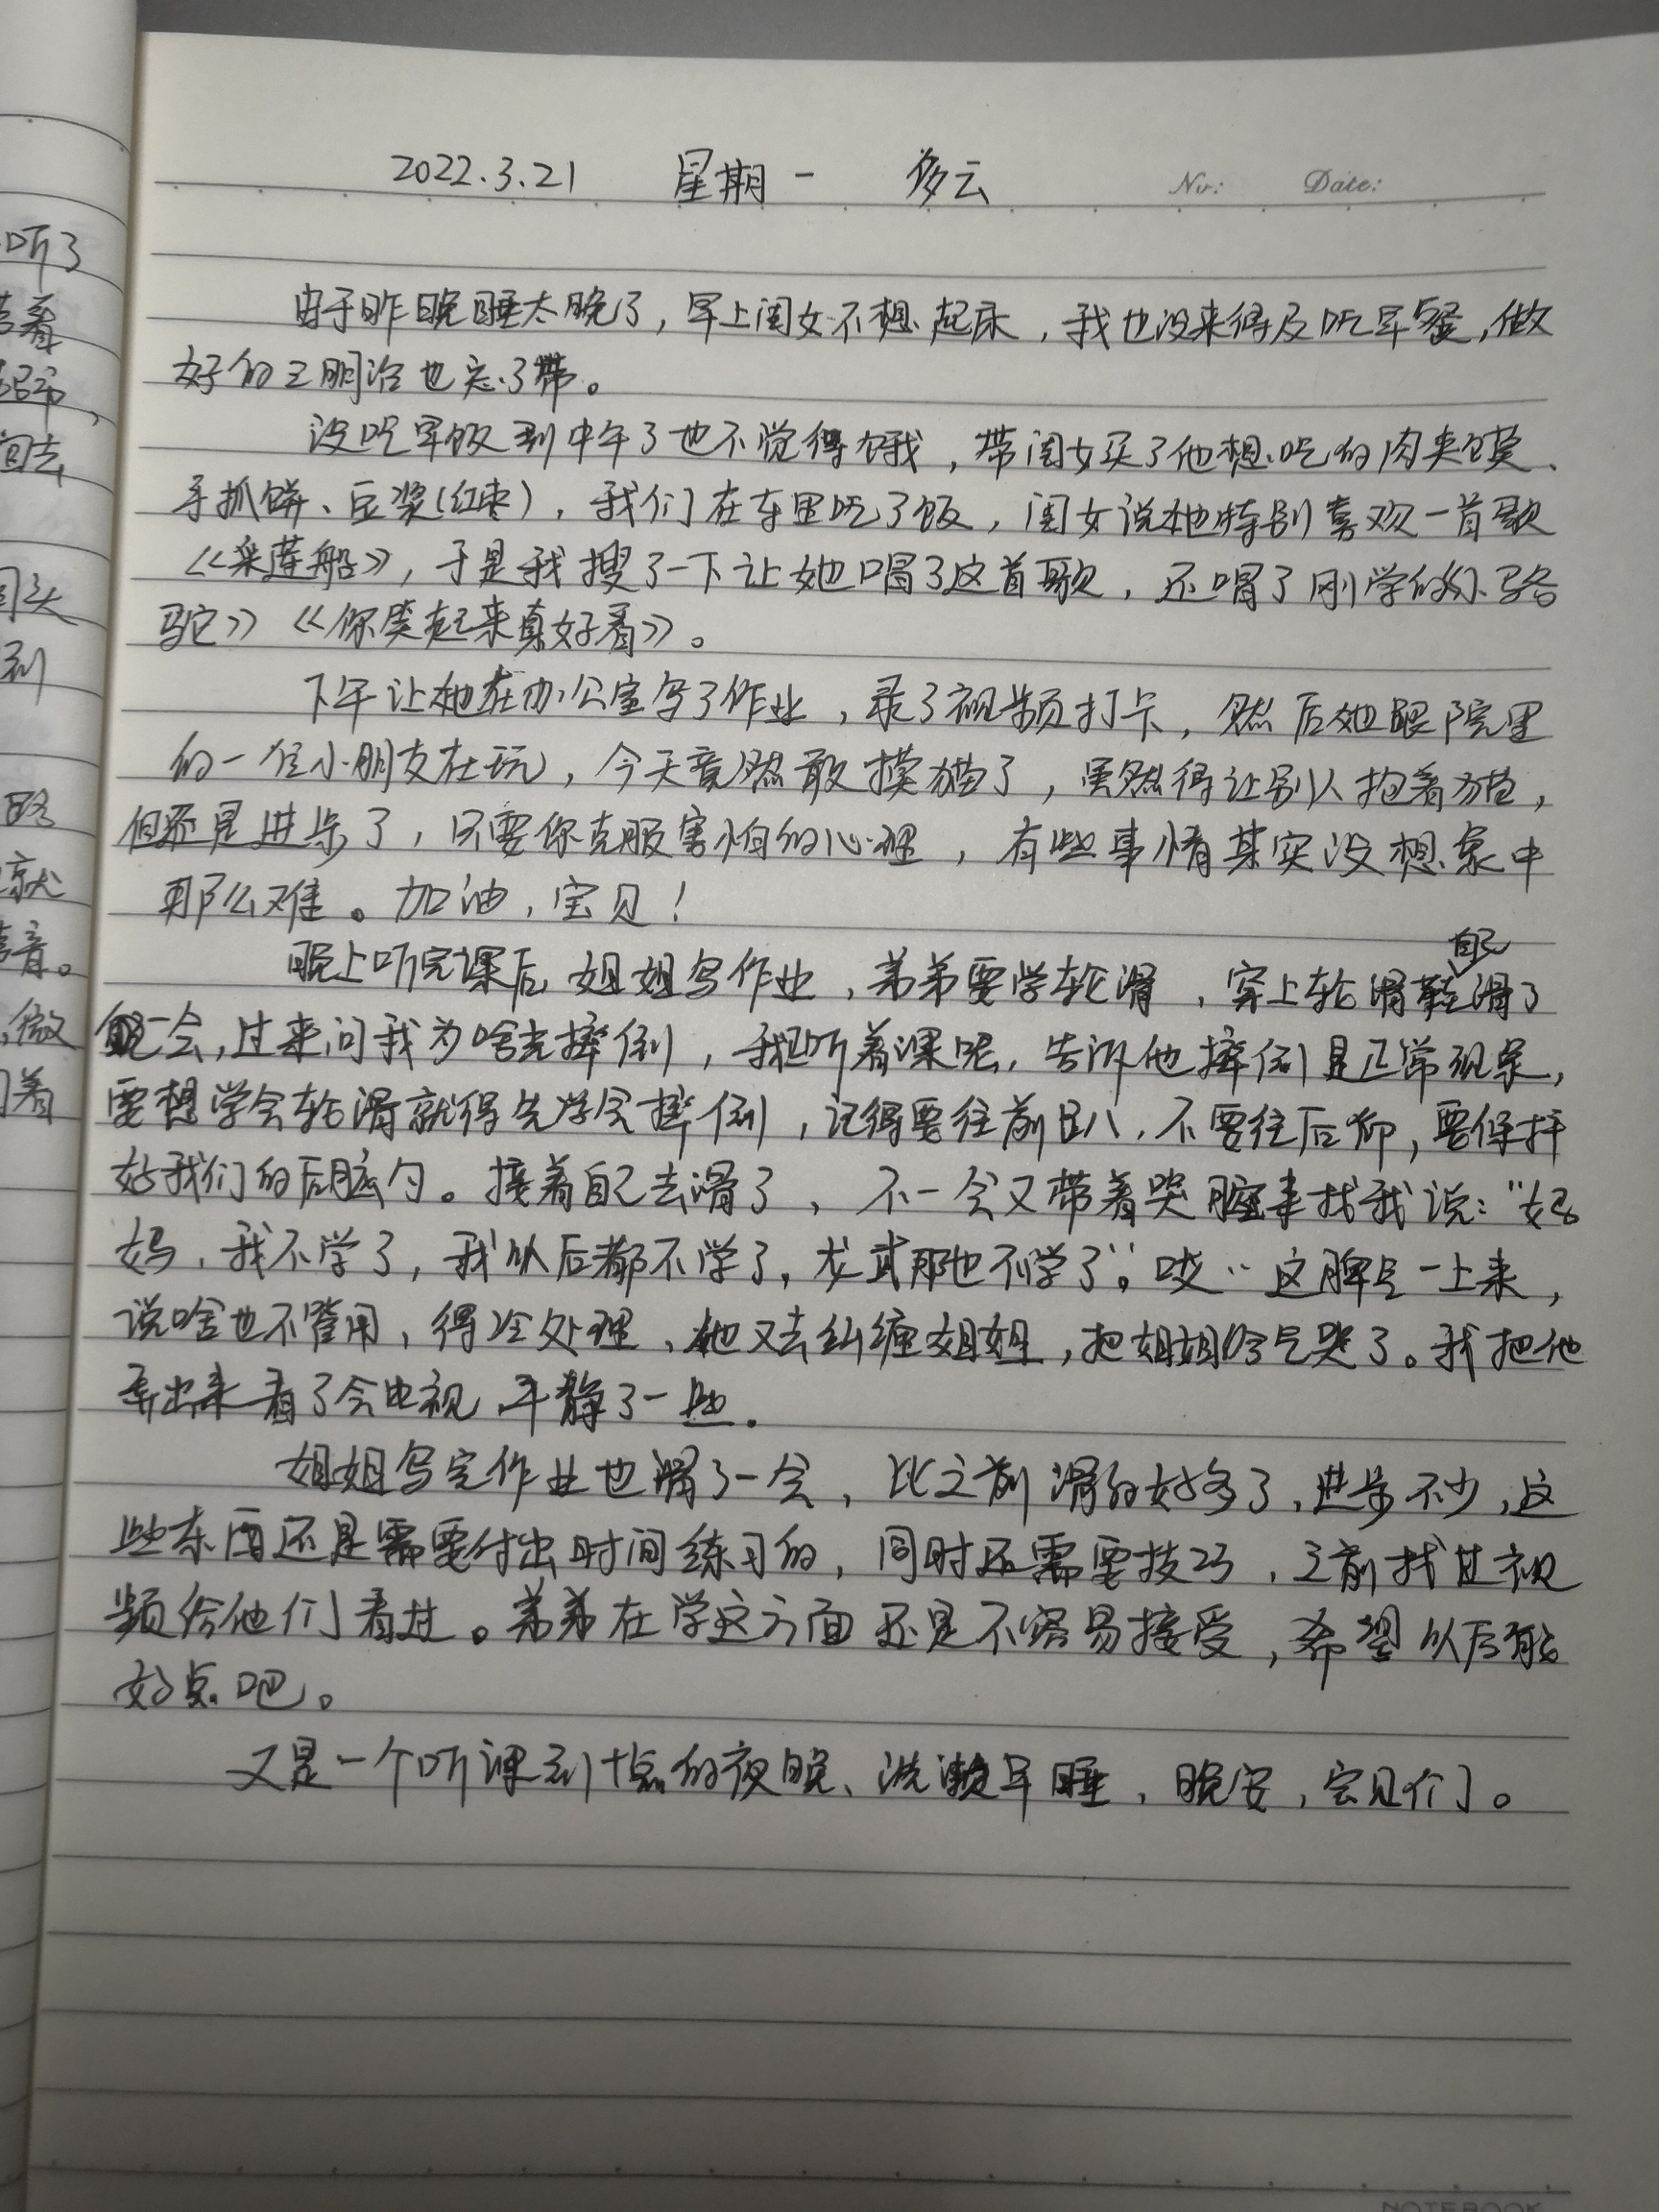 2022.3.21 星期一 多云 No: Date:
由于昨晚睡太晚了，早上闺女不想起床，我也没来得及吃早餐，做
好的三明治也忘了带。
没吃早饭到中午了也不觉得饿，带闺女买了他想吃的肉夹馍、
手抓饼、豆浆(红枣)，我们在车里吃了饭，闺女说她特别喜欢一首歌
《采莲船》，于是我搜了一下让她唱了这首歌，还唱了刚学的《小骆
驼》《你笑起来真好看》。
下午让她在办公室写了作业，录了视频打卡，然后她跟院里
的一位小朋友在玩，今天竟然敢摸猫了，虽然得让别人抱着猫，
但还是进步了，只要你克服害怕的心理，有些事情其实没想象中
那么难。加油，宝贝！
自己
晚上听完课后，姐姐写作业，弟弟要学轮滑，穿上轮滑鞋滑了
一会，过来问我为啥老摔倒，我听着课呢，告诉他摔倒是正常现象，
要想学会轮滑就得先学会摔倒，记得要往前趴，不要往后仰，要保护
好我们的后脑勺。接着自己去滑了，不一会又带着哭腔来找我说：“妈
妈，我不学了，我以后都不学了，龙武那也不学了”。哎‥这脾气一上来，
说啥也不管用，得冷处理，她又去纠缠姐姐，把姐姐给气哭了。我把他
弄出来看了会电视，平静了一些。
姐姐写完作业也滑了一会，比之前滑的好多了，进步不少，这
些东西还是需要付出时间练习的，同时还需要技巧，之前找过视
频给他们看过。弟弟在学这方面还是不容易接受，希望以后能
好点吧。
又是一个听课到十点的夜晚、洗漱早睡，晚安，宝贝们。
听了
着
回去
到
路
就
音。
，微
着
NOTEBOOK